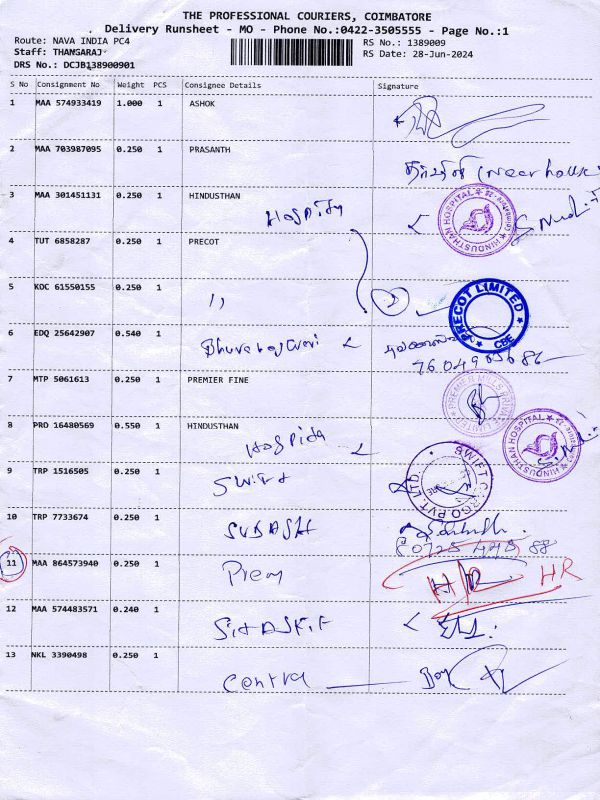 THE PROFESSIONAL COURIERS, COIMBATORE
Delivery Runsheet - MO - Phone No.:0422-3505555 - Page No.:1
Route: NAVA INDIA PC4 RS No.: 1389009
Staff: THANGARAJ RS Date: 28-Jun-2024
DRS No.: DCJB138900901
S No Consignment No Weight PCS Consignee Details Signature
1 MAA 574933419 1.000 1 ASHOK
2 MAA 703987095 0.250 1 PRASANTH
(Near house)
3 MAA 301451131 0.250 1 HINDUSTHAN
Hospital
HINDUSTHAN HOSPITAL
4 TUT 6858287 0.250 1 PRECOT
5 KOC 61550155 0.250 1
PRECOT LIMITED
CBE
6 EDQ 25642907 0.540 1
Bhuvaneswari
7 MTP 5061613 0.250 1 PREMIER FINE
PREMIER MILLS PRIVATE LIMITED
8 PRO 16480569 0.550 1 HINDUSTHAN
Hospital
HINDUSTHAN HOSPITAL
9 TRP 1516505 0.250 1
Swift
SWIFT CARGO PVT. LTD.
10 TRP 7733674 0.250 1
SUBASH
11 MAA 864573940 0.250 1
Prem
H/R HR
12 MAA 574483571 0.240 1
13 NKL 3390498 0.250 1
Central